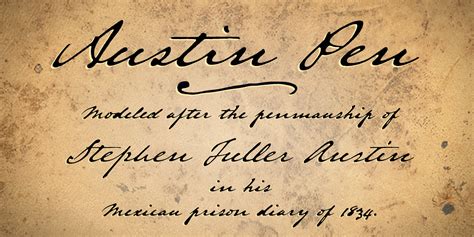 Austin Pen
Modeled after the penmanship of
Stephen Fuller Austin
in his
Mexican prison diary of 1834.